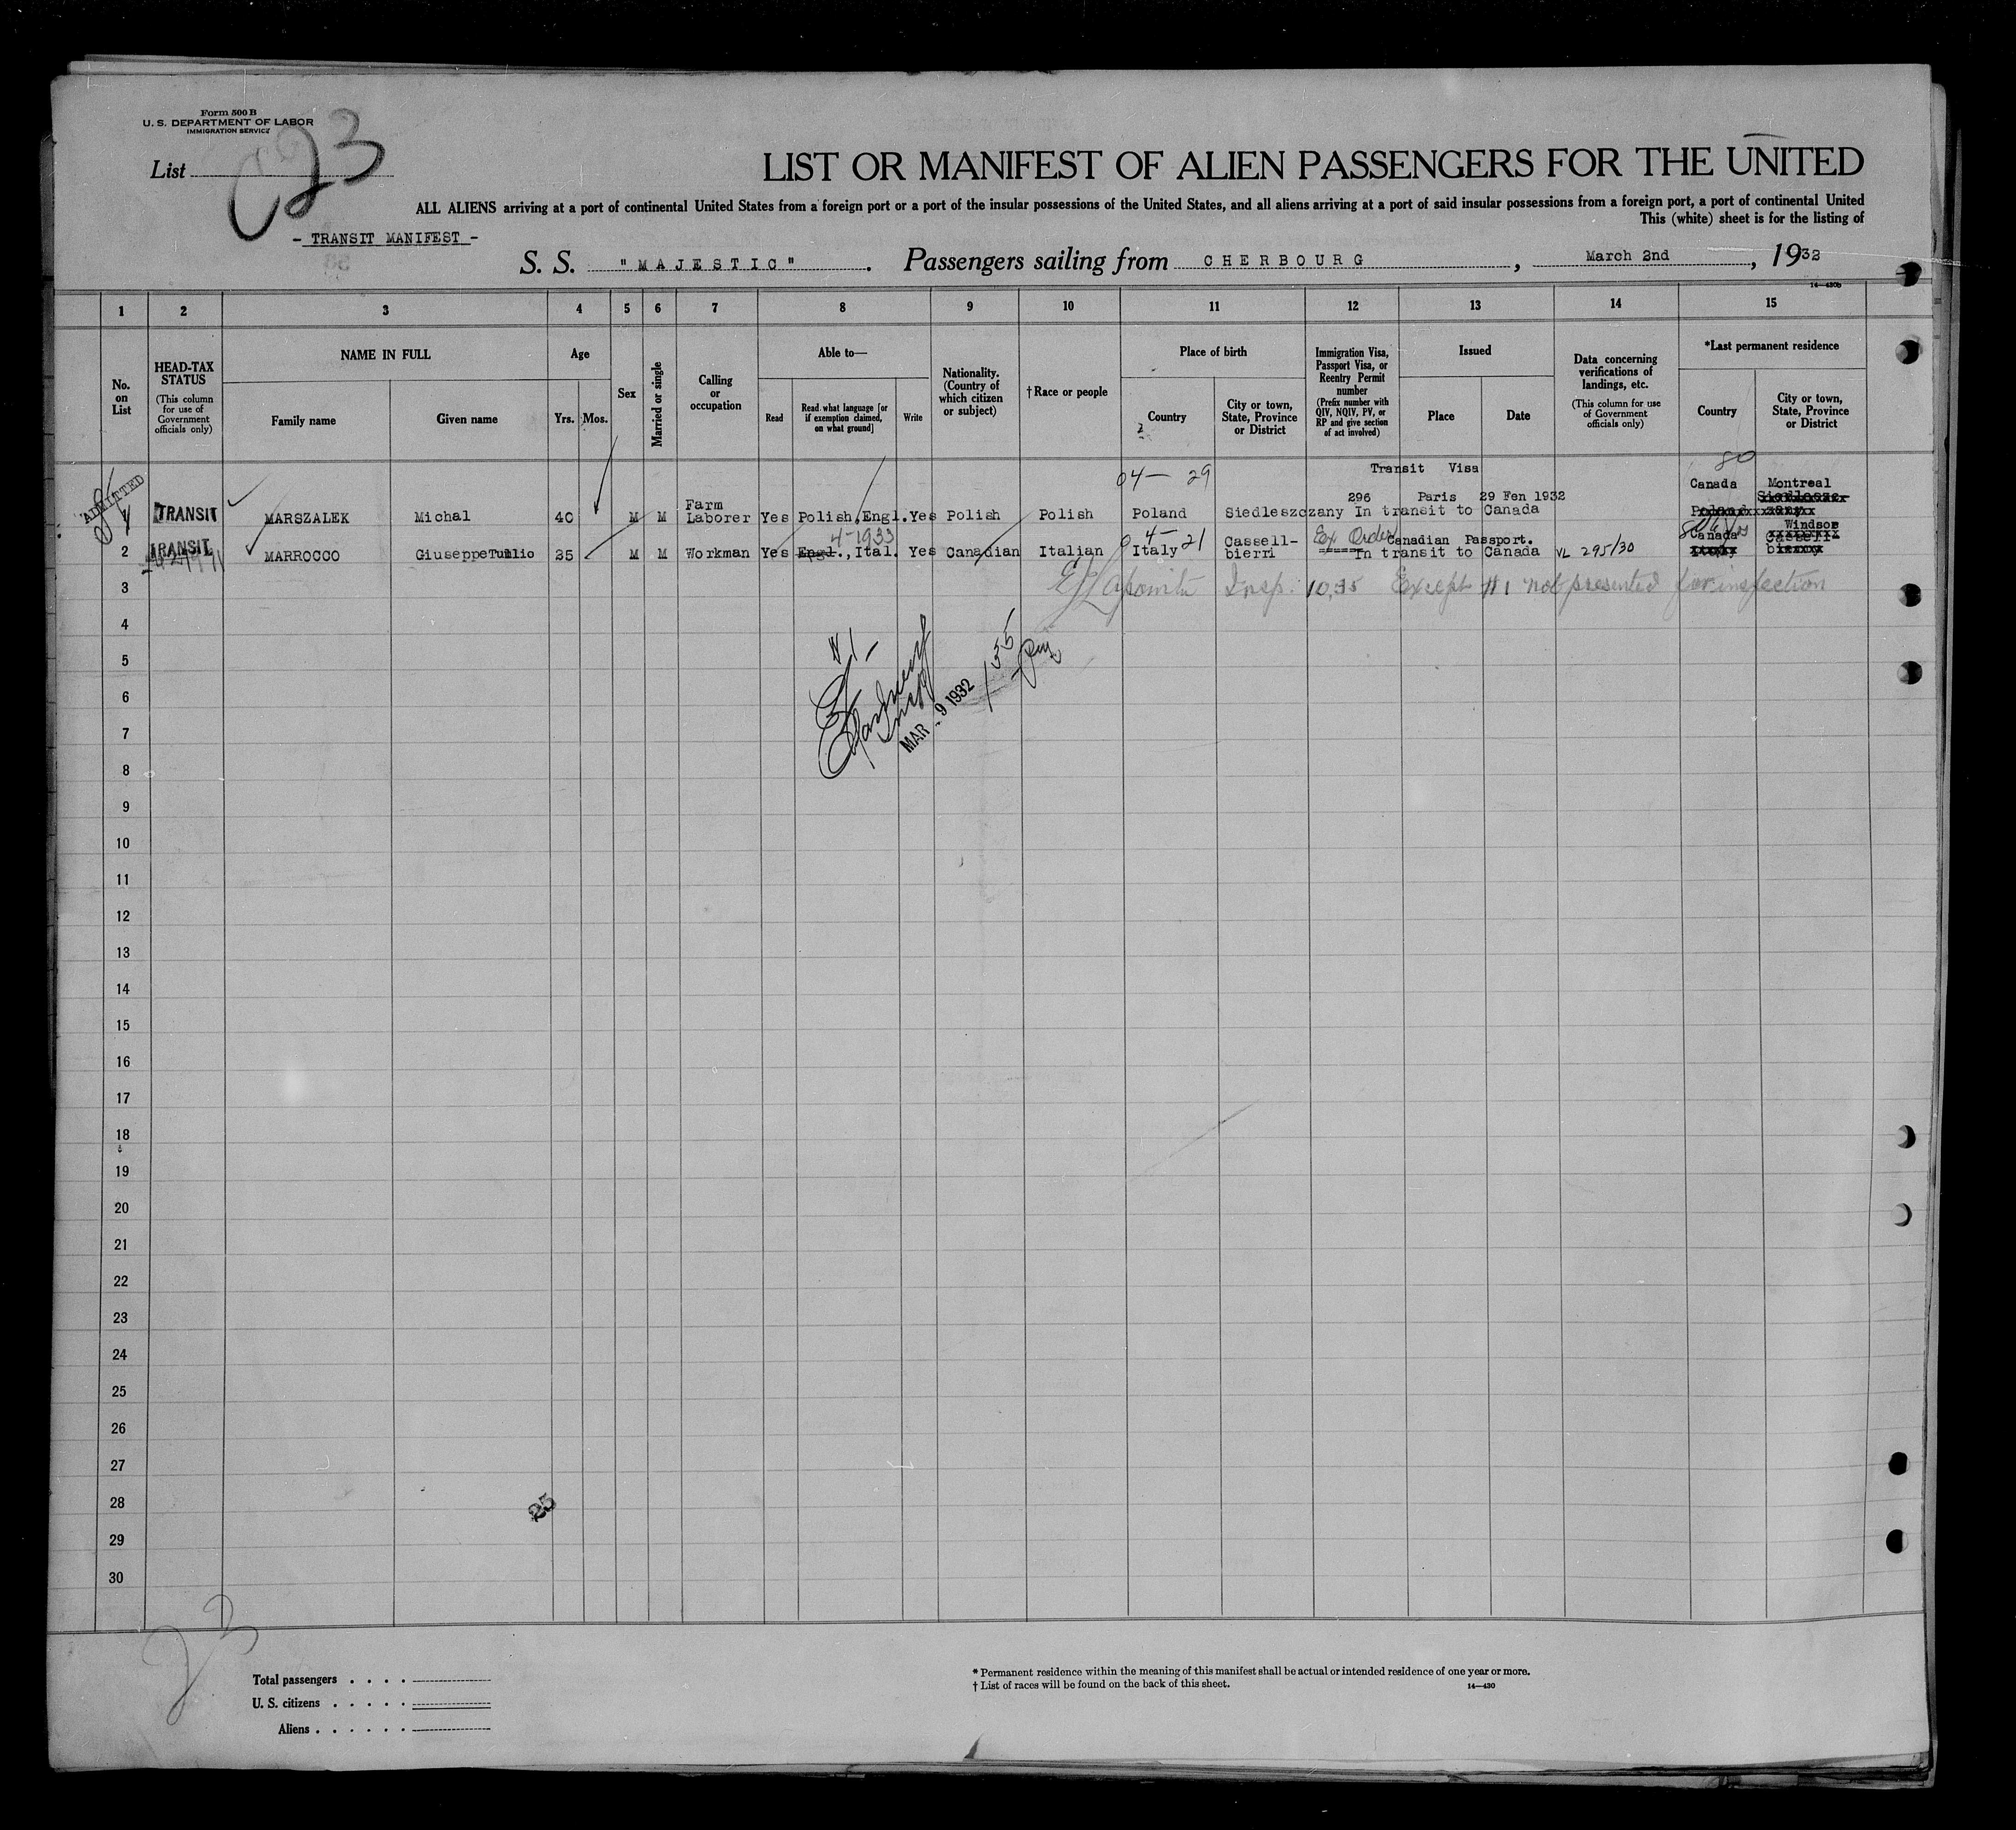 Form 500 B
U. S. DEPARTMENT OF LABOR
IMMIGRATION SERVICE
List 23
LIST OR MANIFEST OF ALIEN PASSENGERS FOR THE UNITED
ALL ALIENS arriving at a port of continental United States from a foreign port or a port of the insular possessions of the United States, and all aliens arriving at a port of said insular possessions from a foreign port, a port of continental United
This (white) sheet is for the listing of
- TRANSIT MANIFEST -
S. S. "MAJESTIC". Passengers sailing from CHERBOURG, March 2nd, 1932
14—430b
1 2 3 4 5 6 7 8 9 10 11 12 13 14 15
No. on List
HEAD-TAX STATUS
(This column for use of Government officials only)
NAME IN FULL
Family name
Given name
Age
Yrs.
Mos.
Sex
Married or single
Calling or occupation
Able to—
Read
Read what language [or if exemption claimed, on what ground]
Write
Nationality. (Country of which citizen or subject)
†Race or people
Place of birth
Country
City or town, State, Province or District
Immigration Visa, Passport Visa, or Reentry Permit number
(Prefix number with QIV, NQIV, PV, or RP and give section of act involved)
Issued
Place
Date
Data concerning verifications of landings, etc.
(This column for use of Government officials only)
*Last permanent residence
Country
City or town, State, Province or District
04— 29
Transit Visa
80
ADMITTED
TRANSIT
MARSZALEK Michal 40 M M Farm Laborer Yes Polish,Engl. Yes Polish Polish Poland Siedleszczany
296 Paris 29 Fen 1932
In transit to Canada
Canada Montreal
2 TRANSIT MARROCCO GiuseppeTullio 35 M M Workman Yes Engl., Ital. Yes Canadian Italian Italy Cassell-bierri
4-1933
04— 21
Ex Order
Canadian Passport.
In transit to Canada
VL 295/30
Canada Windsor
3
Insp. 10,35 Except #1 not presented for inspection
4
#1 -
5
6
MAR - 9 1932
1 55 Pm
7
8
9
10
11
12
13
14
15
16
17
18
19
20
21
22
23
24
25
26
27
28
25
29
30
23
Total passengers
U. S. citizens
Aliens
* Permanent residence within the meaning of this manifest shall be actual or intended residence of one year or more.
† List of races will be found on the back of this sheet.
14—430